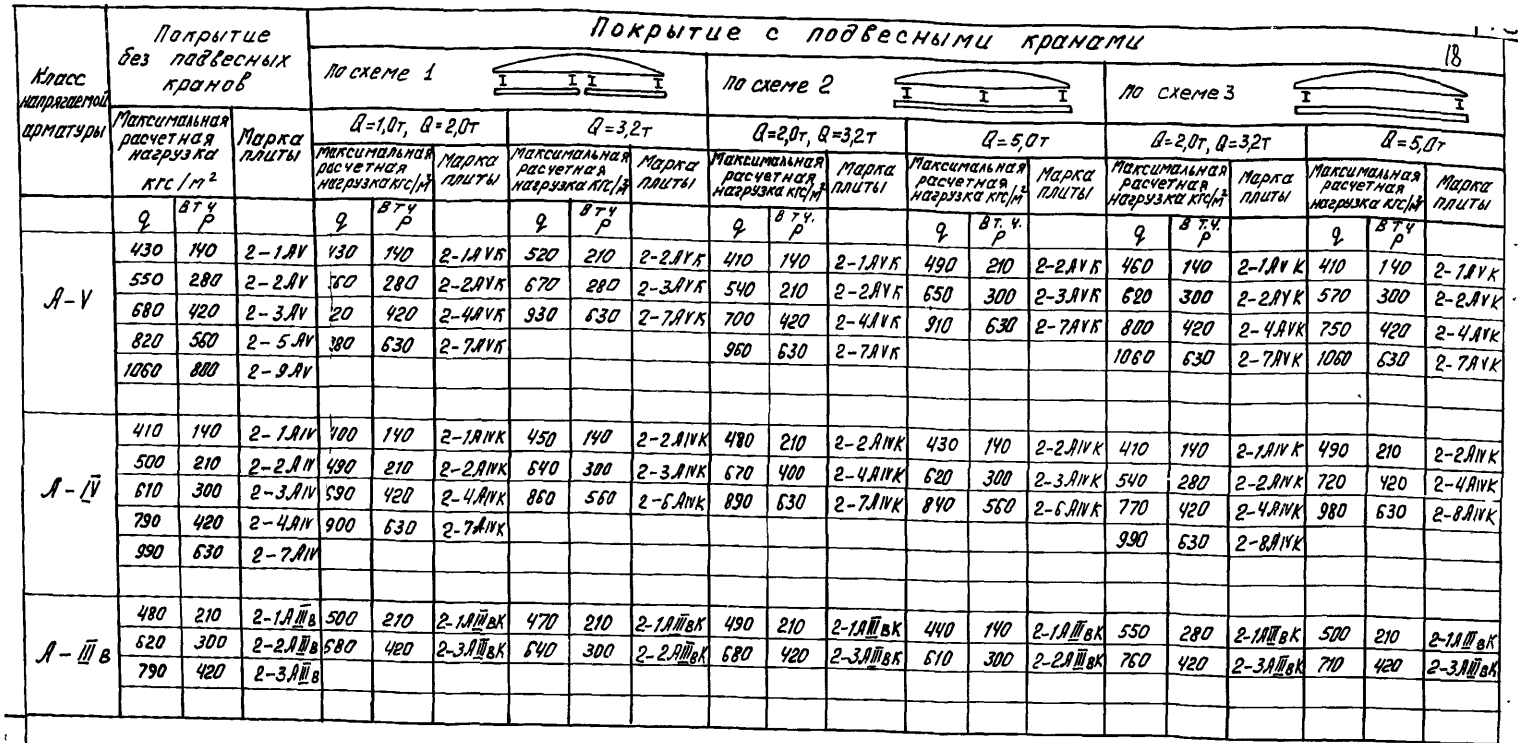 Класс напрягаемой арматуры
Покрытие без падвесных кранов
Покрытие с подвесными кранами
18
По схеме 1
По схеме 2
По схеме 3
Максимальная расчетная нагрузка кгс/м²
Марка плиты
Q=1,0т, Q=2,0т
Q=3,2т
Q=2,0т, Q=3,2т
Q=5,0т
Q=2,0т, Q=3,2т
Q=5,0т
Максимальная расчетная нагрузка кгс/м²
Марка плиты
Максимальная расчетная нагрузка кгс/м²
Марка плиты
Максимальная расчетная нагрузка кгс/м²
Марка плиты
Максимальная расчетная нагрузка кгс/м²
Марка плиты
Максимальная расчетная нагрузка кгс/м²
Марка плиты
Максимальная расчетная нагрузка кгс/м²
Марка плиты
q В т.ч. P q В т.ч. P q В т.ч. P q В т.ч. P q В т.ч. P q В т.ч. P q В т.ч. P
А-V
430 140 2-1АV 430 140 2-1АVК 520 210 2-2АVК 410 140 2-1АVК 490 210 2-2АVК 460 140 2-1АVК 410 140 2-1АVК
550 280 2-2АV 280 2-2АVК 670 280 2-3АVК 540 210 2-2АVК 650 300 2-3АVК 620 300 2-2АVК 570 300 2-2АVК
680 420 2-3АV 420 2-4АVК 930 630 2-7АVК 700 420 2-4АVК 910 630 2-7АVК 800 420 2-4АVК 750 420 2-4АVК
820 560 2-5АV 630 2-7АVК 960 630 2-7АVК 1060 630 2-7АVК 1060 630 2-7АVК
1060 800 2-9АV
А-IV
410 140 2-1АIV 400 140 2-1АIVК 450 140 2-2АIVК 480 210 2-2АIVК 430 140 2-2АIVК 410 140 2-1АIVК 490 210 2-2АIVК
500 210 2-2АIV 490 210 2-2АIVК 640 300 2-3АIVК 670 400 2-4АIVК 620 300 2-3АIVК 540 280 2-2АIVК 720 420 2-4АIVК
610 300 2-3АIV 690 420 2-4АIVК 860 560 2-6АIVК 890 630 2-7АIVК 840 560 2-6АIVК 770 420 2-4АIVК 980 630 2-8АIVК
790 420 2-4АIV 900 630 2-7АIVК 990 630 2-8АIVК
990 630 2-7АIV
А-IIIв
480 210 2-1АIIIв 500 210 2-1АIIIвК 470 210 2-1АIIIвК 490 210 2-1АIIIвК 440 140 2-1АIIIвК 550 280 2-1АIIIвК 500 210 2-1АIIIвК
620 300 2-2АIIIв 680 420 2-3АIIIвК 640 300 2-2АIIIвК 680 420 2-3АIIIвК 610 300 2-2АIIIвК 760 420 2-3АIIIвК 710 420 2-3АIIIвК
790 420 2-3АIIIв